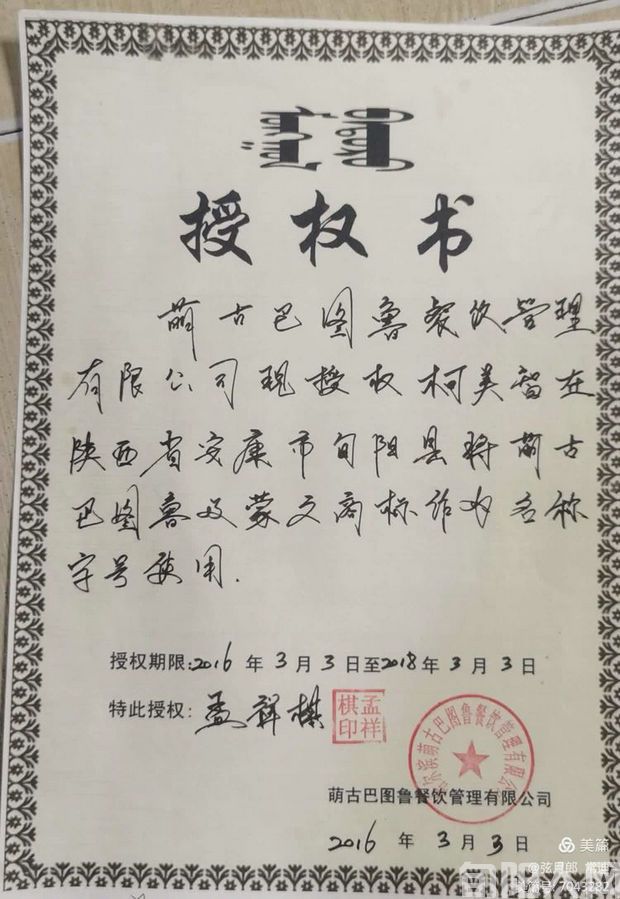 授权书
萌古巴图鲁餐饮管理
有限公司现授权柯美智在
陕西省安康市旬阳县将萌古
巴图鲁及蒙文商标作为名称
字号使用.
授权期限:2016年3月3日至2018年3月3日
特此授权:孟祥棋
孟祥棋印
萌古巴图鲁餐饮管理有限公
萌古巴图鲁餐饮管理有限公司
2016年3月3日
美篇
@弦月郎
美篇号:7043282